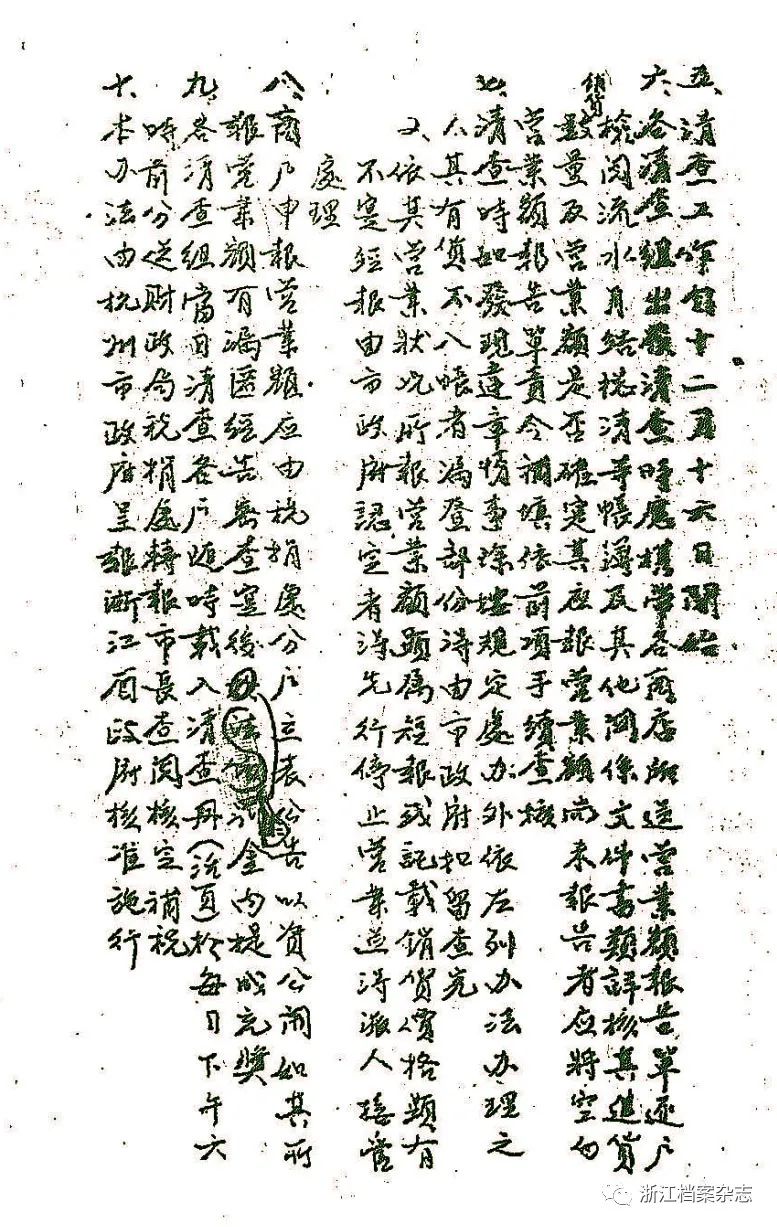 五、清查工作自十二月十六日開始
六、各清查組出發清查時應携帶各商店所送营業額報告單逐户
檢閱流水月結總清等帳簿及其他関係文件書類詳核其進貨
銷貨
數量及营業額是否確实其应報营業額尚未報告者应將空白
营業額報告單責令補填依前項手續查核
七、清查時如發現違章情事除按規定處办外依左列办法办理之
1、其有貨不入帳者漏登部份得由市政府扣留查究
2、依其营業狀况所報营業額顕爲短報或記載銷貨價格顕有
不实經報由市政府認定者得先行停止营業並得派人接管
處理
八、商户申報营業額应由税捐處分户立表公告以資公開如其所
報营業額有漏匿經告密查实後 金内提成充獎
九、各清查組當日清查各户随時載入清查册(活頁)於每日下午六
時前分送財政局税捐處轉報市長查閱核定補税
十、本办法由杭州市政府呈報浙江省政府核准施行
浙江档案杂志